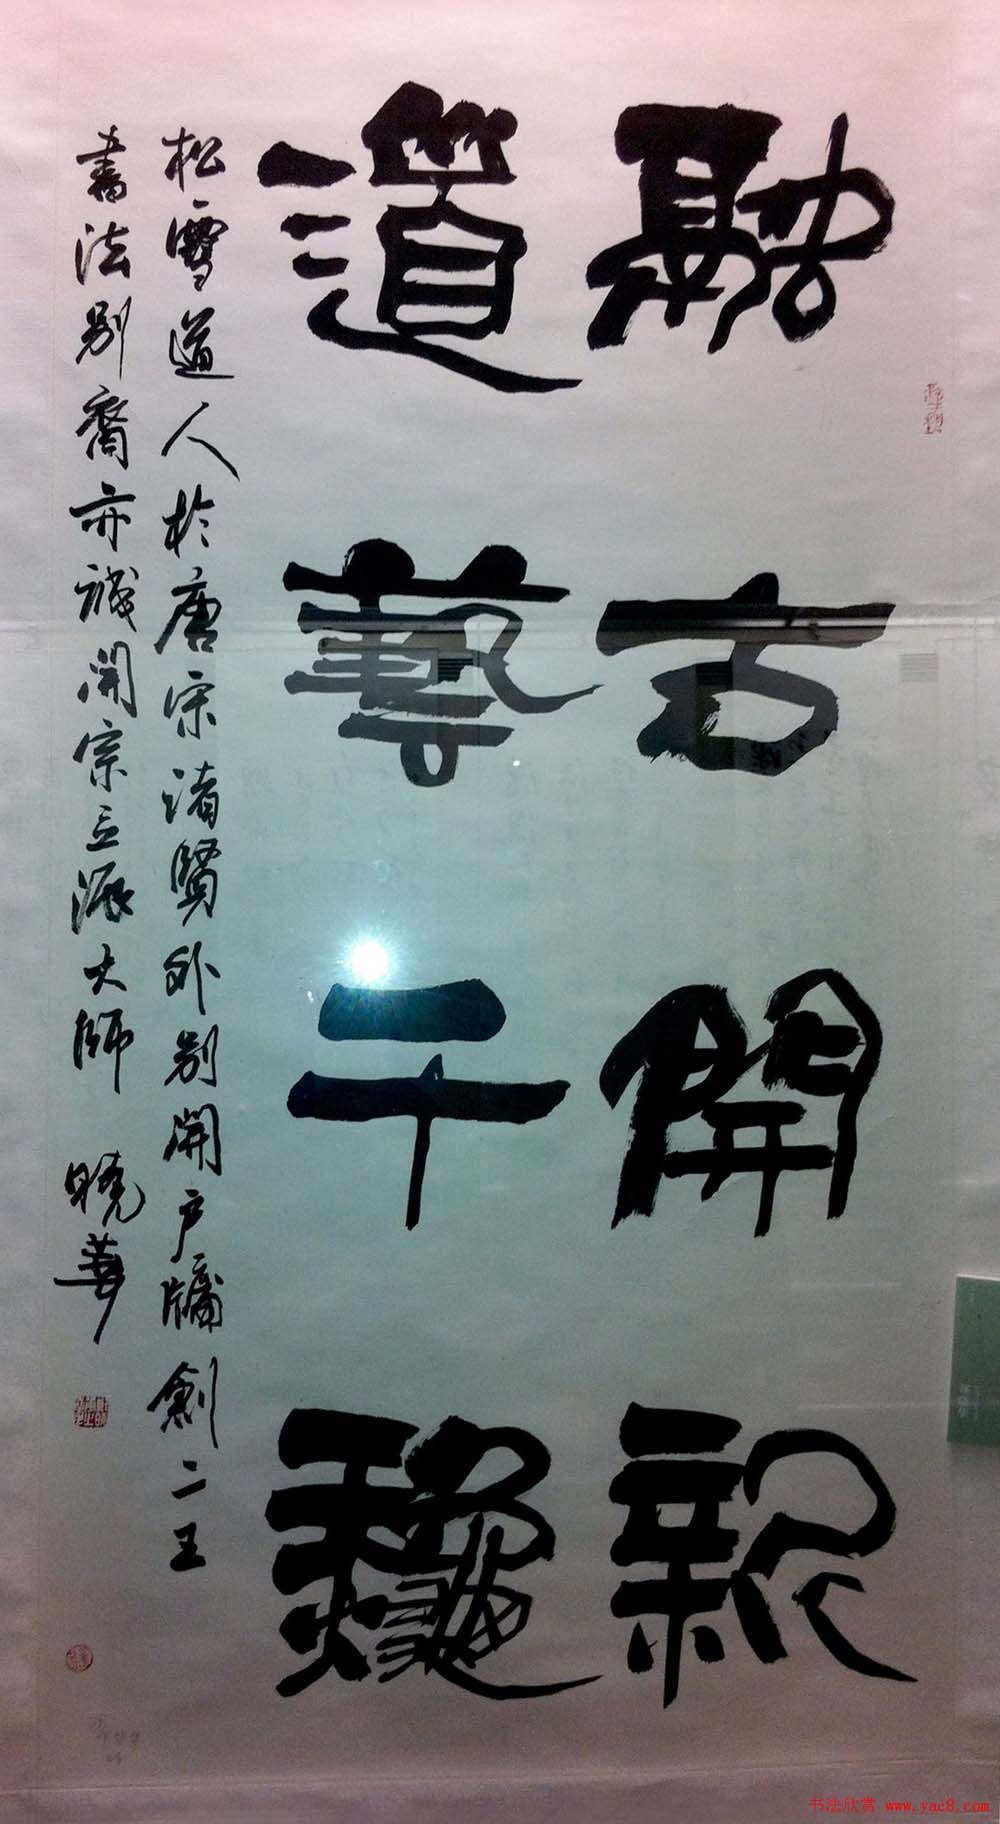 融古開新
道藝千龝
松雪道人於唐宋諸賢外別開戶牖創二王
書法別裔亦誠開宗立派大師 曉華
书法欣赏 www.yac8.com